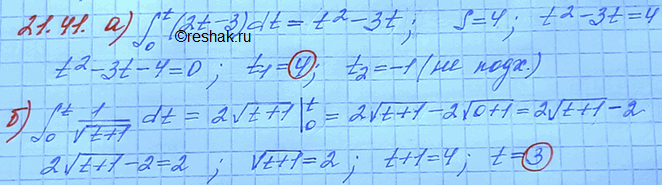 21.41. а) ∫₀ᵗ(2t-3)dt = t²-3t; S=4; t²-3t=4
©reshak.ru
t²-3t-4=0; t₁=4; t₂=-1 (не подх.)
б) ∫₀ᵗ 1/√(t+1) dt = 2√(t+1) |₀ᵗ = 2√(t+1) - 2√(0+1) = 2√(t+1) - 2
2√(t+1) - 2 = 2; √(t+1) = 2; t+1=4; t=3